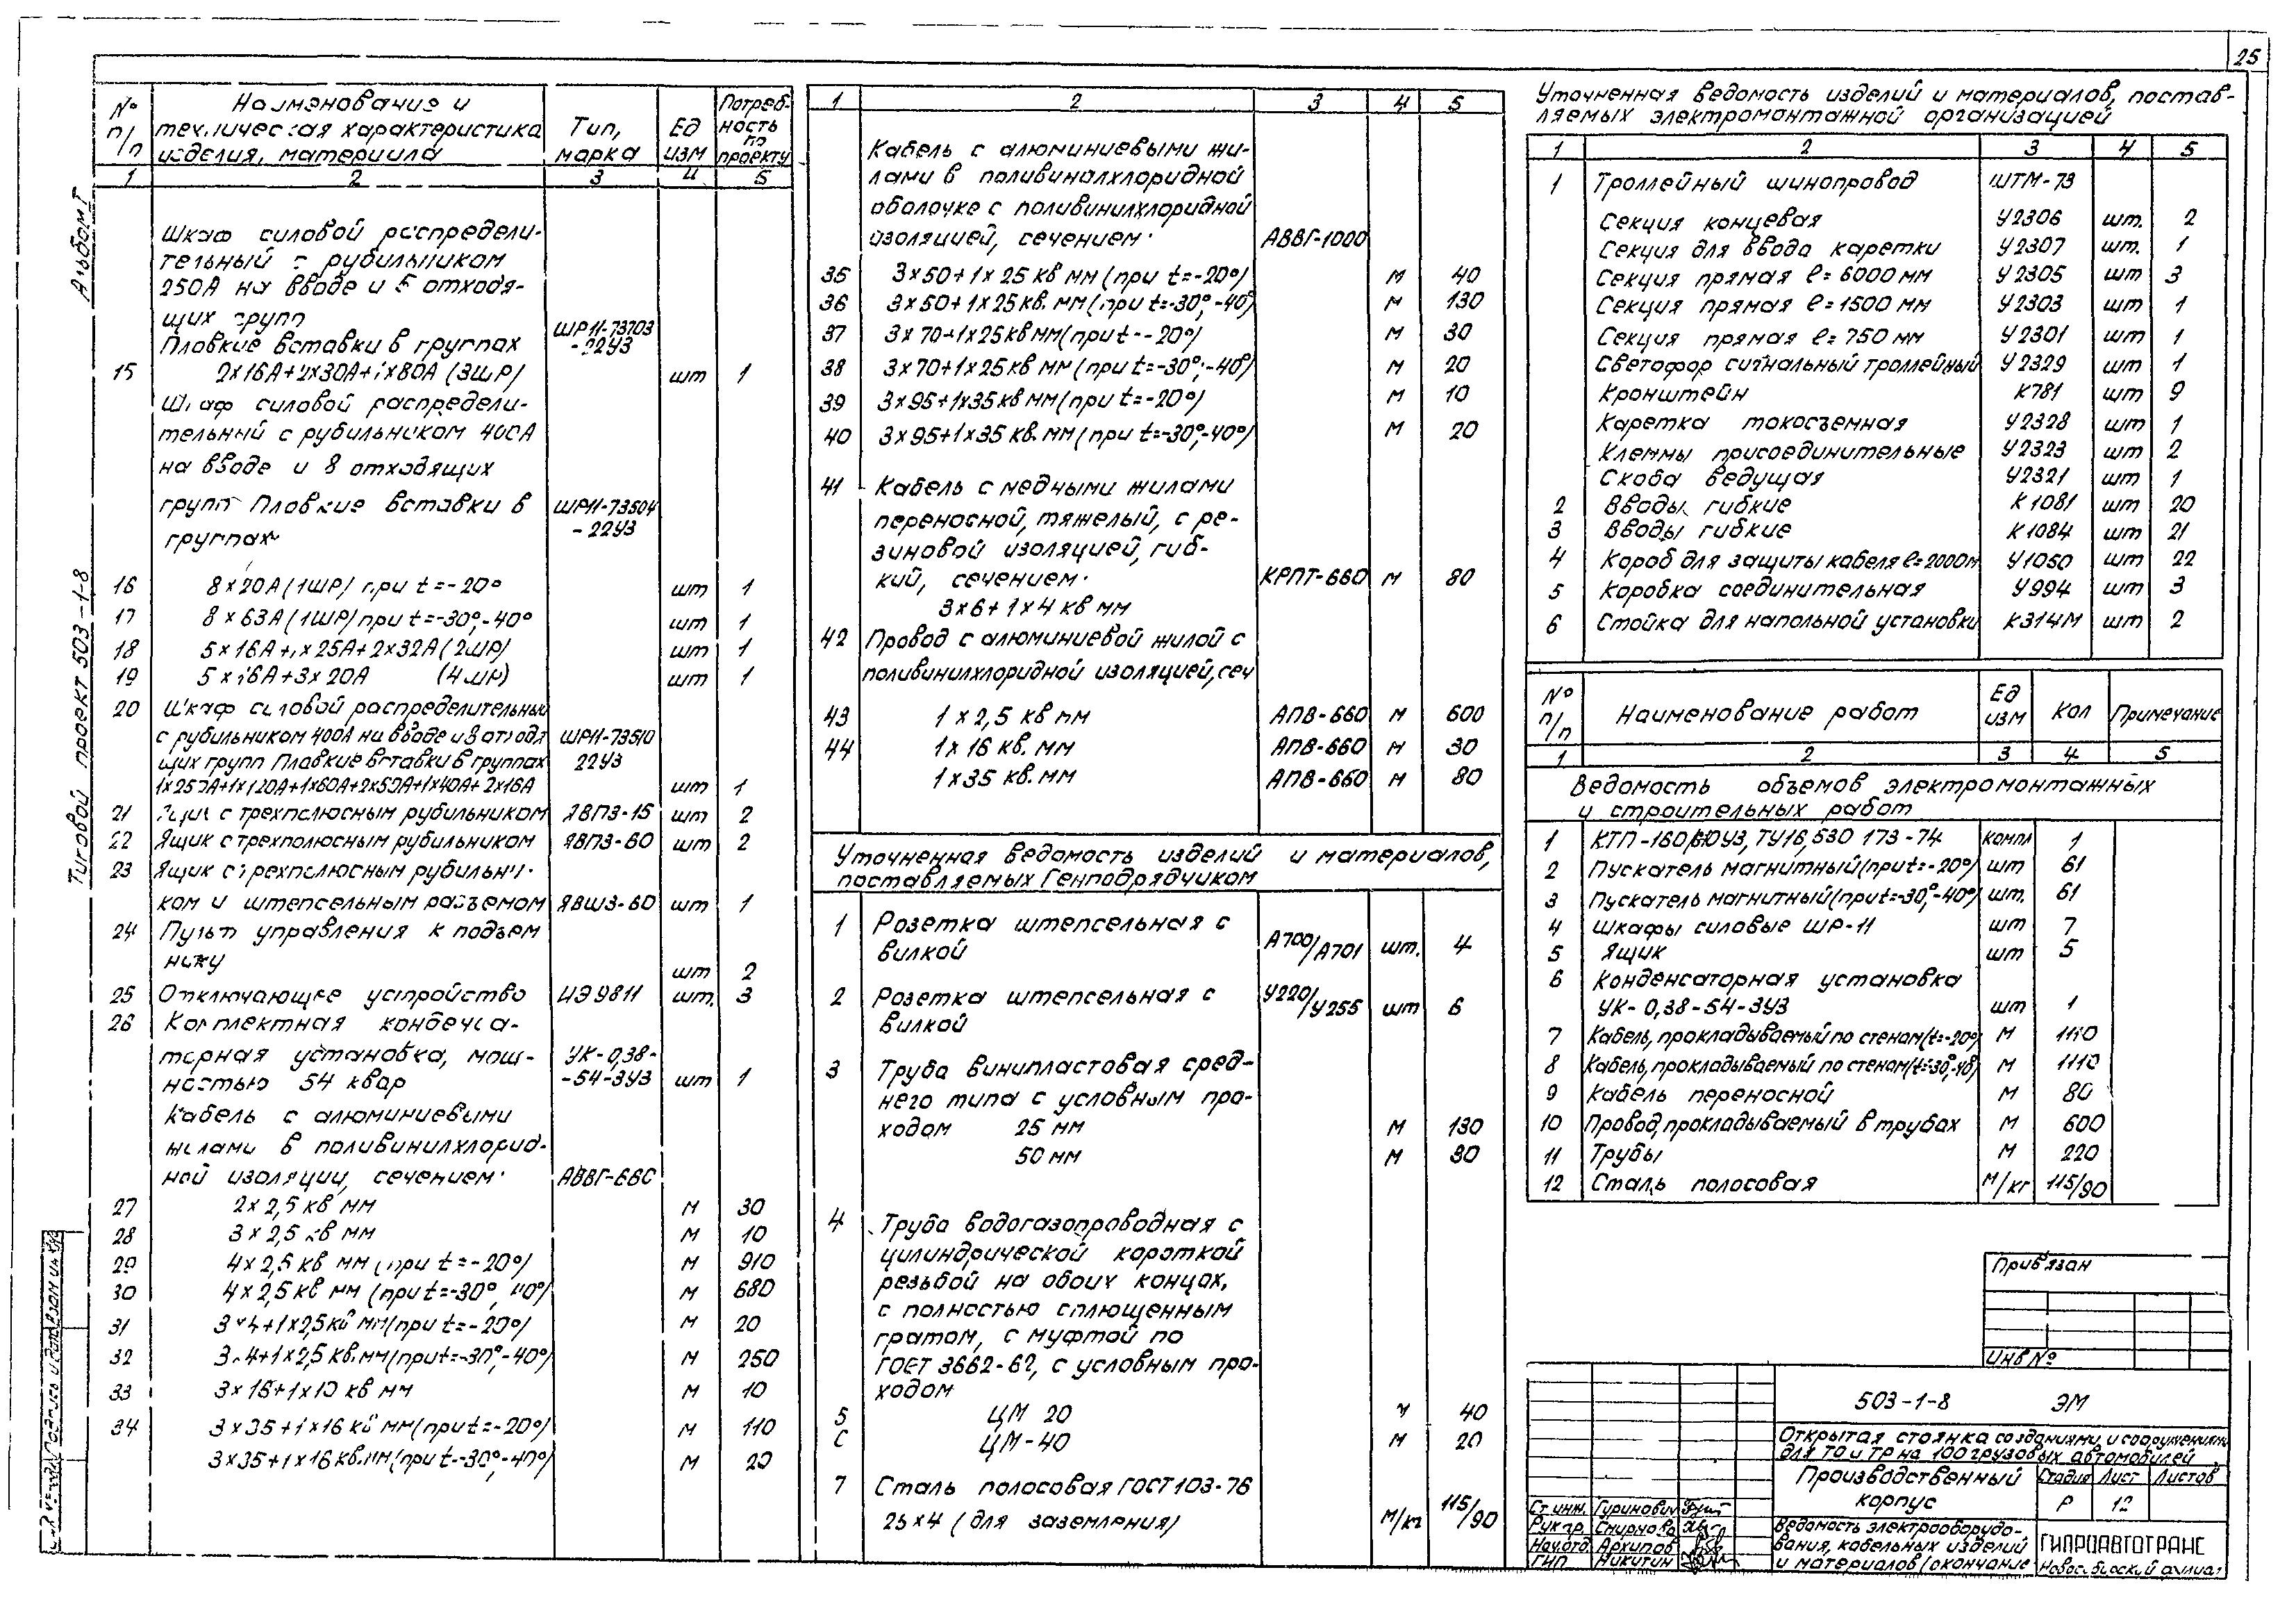 25
Альбом I
Типовой проект 503-1-8
№ п/п
Наименование и техническая характеристика изделия, материала
Тип, марка
Ед изм
Потребность по проекту
1 2 3 4 5
Шкаф силовой распредели-
тельный с рубильником
250А на вводе и 5 отходя-
щих групп
Плавкие вставки в группах ШР11-73703
-22У3
15 2х16А+2х30А+1х80А (3ШР) шт 1
Шкаф силовой распредели-
тельный с рубильником 400А
на вводе и 8 отходящих
групп Плавкие вставки в ШР11-73504
группах -22У3
16 8х20А (1ШР) при t=-20° шт 1
17 8х63А (1ШР) при t=-30°,-40° шт 1
18 5х16А+1х25А+2х32А (2ШР) шт 1
19 5х16А+3х20А (4ШР) шт 1
20 Шкаф силовой распределительный
с рубильником 400А на вводе и 8 отходя ШР11-73510
щих групп Плавкие вставки в группах 22У3
1х250А+1х120А+1х60А+2х50А+1х40А+2х16А шт 1
21 Ящик с трехполюсным рубильником ЯВПЗ-15 шт 2
22 Ящик с трехполюсным рубильником ЯВПЗ-60 шт 2
23 Ящик с трехполюсным рубильни-
ком и штепсельным разъемом ЯВШЗ-60 шт 1
24 Пульт управления к подъем
нику шт 2
25 Отключающее устройство ИЭ9811 шт. 3
26 Комплектная конденса-
торная установка, мощ- УК-0,38-
ностью 54 квар -54-3У3 шт 1
Кабель с алюминиевыми
жилами в поливинилхлорид-
ной изоляции, сечением: АВВГ-660
27 2х2,5 кв мм м 30
28 3х2,5 кв мм м 10
29 4х2,5 кв мм (при t=-20°) м 910
30 4х2,5 кв мм (при t=-30°, 40°) м 680
31 3х4+1х2,5 кв мм (при t=-20°) м 20
32 3х4+1х2,5 кв.мм (при t=-30°,-40°) м 250
33 3х16+1х10 кв мм м 10
34 3х35+1х16 кв мм (при t=-20°) м 110
3х35+1х16 кв.мм (при t=-30°,-40°) м 20
1 2 3 4 5
Кабель с алюминиевыми жи-
лами в поливинилхлоридной
оболочке с поливинилхлоридной
изоляцией, сечением: АВВГ-1000
35 3х50+1х25 кв мм (при t=-20°) м 40
36 3х50+1х25 кв. мм (при t=-30°,-40°) м 130
37 3х70+1х25 кв мм (при t=-20°) м 30
38 3х70+1х25 кв мм (при t=-30°,-40°) м 20
39 3х95+1х35 кв мм (при t=-20°) м 10
40 3х95+1х35 кв.мм (при t=-30°,-40°) м 20
41 Кабель с медными жилами
переносной, тяжелый, с ре-
зиновой изоляцией, гиб-
кий, сечением: КРПТ-660 м 80
3х6+1х4 кв мм
42 Провод с алюминиевой жилой с
поливинилхлоридной изоляцией, сеч
43 1х2,5 кв мм АПВ-660 м 600
44 1х16 кв. мм АПВ-660 м 30
1х35 кв.мм АПВ-660 м 80
Уточненная ведомость изделий и материалов,
поставляемых Генподрядчиком
1 Розетка штепсельная с А700/А701 шт. 4
вилкой
2 Розетка штепсельная с У220/У255 шт 6
вилкой
3 Труба винипластовая сред-
него типа с условным про-
ходом 25 мм м 130
50 мм м 30
4 Труба водогазопроводная с
цилиндрической короткой
резьбой на обоих концах,
с полностью сплющенным
гратом, с муфтой по
ГОСТ 3662-62, с условным про-
ходом
5 ЦМ 20 м 40
6 ЦМ-40 м 20
7 Сталь полосовая ГОСТ 103-76
25х4 (для заземления) м/кг 115/90
Уточненная ведомость изделий и материалов, постав-
ляемых электромонтажной организацией
1 2 3 4 5
1 Троллейный шинопровод ШТМ-73
Секция концевая У2306 шт. 2
Секция для ввода каретки У2307 шт. 1
Секция прямая ℓ=6000 мм У2305 шт 3
Секция прямая ℓ=1500 мм У2303 шт 1
Секция прямая ℓ=750 мм У2301 шт 1
Светофор сигнальный троллейный У2329 шт 1
Кронштейн К781 шт 9
Каретка токосъемная У2328 шт 1
Клеммы присоединительные У2323 шт 2
Скоба ведущая У2321 шт 1
2 Вводы гибкие К1081 шт 20
3 Вводы гибкие К1084 шт 21
4 Короб для защиты кабеля ℓ=2000м У1050 шт 22
5 Коробка соединительная У994 шт 3
6 Стойка для напольной установки К314М шт 2
№ п/п Наименование работ Ед изм Кол Примечание
1 2 3 4 5
Ведомость объемов электромонтажных
и строительных работ
1 КТП-160/6÷10У3, ТУ16,530 173-74 компл 1
2 Пускатель магнитный (при t=-20°) шт 61
3 Пускатель магнитный (при t=-30°,-40°) шт. 61
4 Шкафы силовые ШР-11 шт 7
5 Ящик шт 5
6 Конденсаторная установка
УК-0,38-54-3У3 шт 1
7 Кабель, прокладываемый по стенам (t=-20°) м 1110
8 Кабель, прокладываемый по стенам (t=-30°,-40°) м 1110
9 Кабель переносной м 80
10 Провод, прокладываемый в трубах м 600
11 Трубы м 220
12 Сталь полосовая м/кг 115/90
Привязан
Инв №
503-1-8 ЭМ
Открытая стоянка со зданиями и сооружениями
для ТО и ТР на 100 грузовых автомобилей
Производственный
корпус
Стадия Лист Листов
Р 12
Ст инж. Гуринович
Рук гр. Смирнова
Нач отд Архипов
ГИП Никитин
Ведомость электрооборудо-
вания, кабельных изделий
и материалов (окончание
ГИПРОАВТОТРАНС
Новосибирский филиал